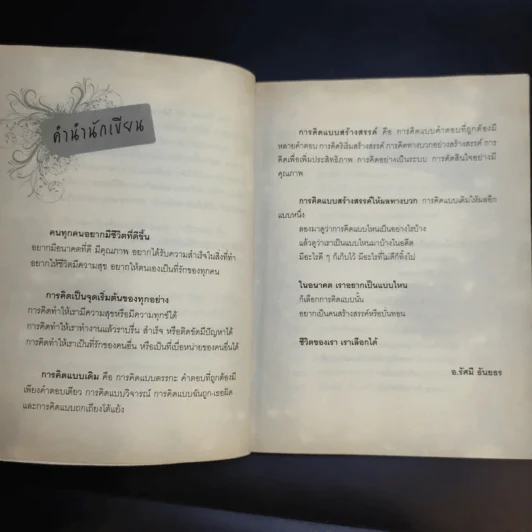 คำนำนักเขียน
คนทุกคนอยากมีชีวิตที่ดีขึ้น
อยากมีอนาคตที่ดี มีคุณภาพ อยากได้รับความสำเร็จในสิ่งที่ทำ
อยากให้ชีวิตมีความสุข อยากให้ตนเองเป็นที่รักของทุกคน
การคิดเป็นจุดเริ่มต้นของทุกอย่าง
การคิดทำให้เรามีความสุขหรือมีความทุกข์ได้
การคิดทำให้เราทำงานแล้วราบรื่น สำเร็จ หรือติดขัดมีปัญหาได้
การคิดทำให้เราเป็นที่รักของคนอื่น หรือเป็นที่เบื่อหน่ายของคนอื่นได้
การคิดแบบเดิม คือ การคิดแบบตรรกะ คำตอบที่ถูกต้องมี
เพียงคำตอบเดียว การคิดแบบวิจารณ์ การคิดแบบฉันถูก-เธอผิด
และการคิดแบบถกเถียงโต้แย้ง
การคิดแบบสร้างสรรค์ คือ การคิดแบบคำตอบที่ถูกต้องมี
หลายคำตอบ การคิดริเริ่มสร้างสรรค์ การคิดทางบวกอย่างสร้างสรรค์ การ
คิดเพื่อเพิ่มประสิทธิภาพ การคิดอย่างเป็นระบบ การตัดสินใจอย่างมี
คุณภาพ
การคิดแบบสร้างสรรค์ให้ผลทางบวก การคิดแบบเดิมให้ผลอีก
แบบหนึ่ง
ลองมาดูว่าการคิดแบบไหนเป็นอย่างไรบ้าง
แล้วดูว่าเราเป็นแบบไหนมาบ้างในอดีต
มีอะไรดี ๆ ก็เก็บไว้ มีอะไรที่ไม่ดีก็ทิ้งไป
ในอนาคต เราอยากเป็นแบบไหน
ก็เลือกการคิดแบบนั้น
อยากเป็นคนสร้างสรรค์หรือบั่นทอน
ชีวิตของเรา เราเลือกได้
อ.รัศมี ธันยธร